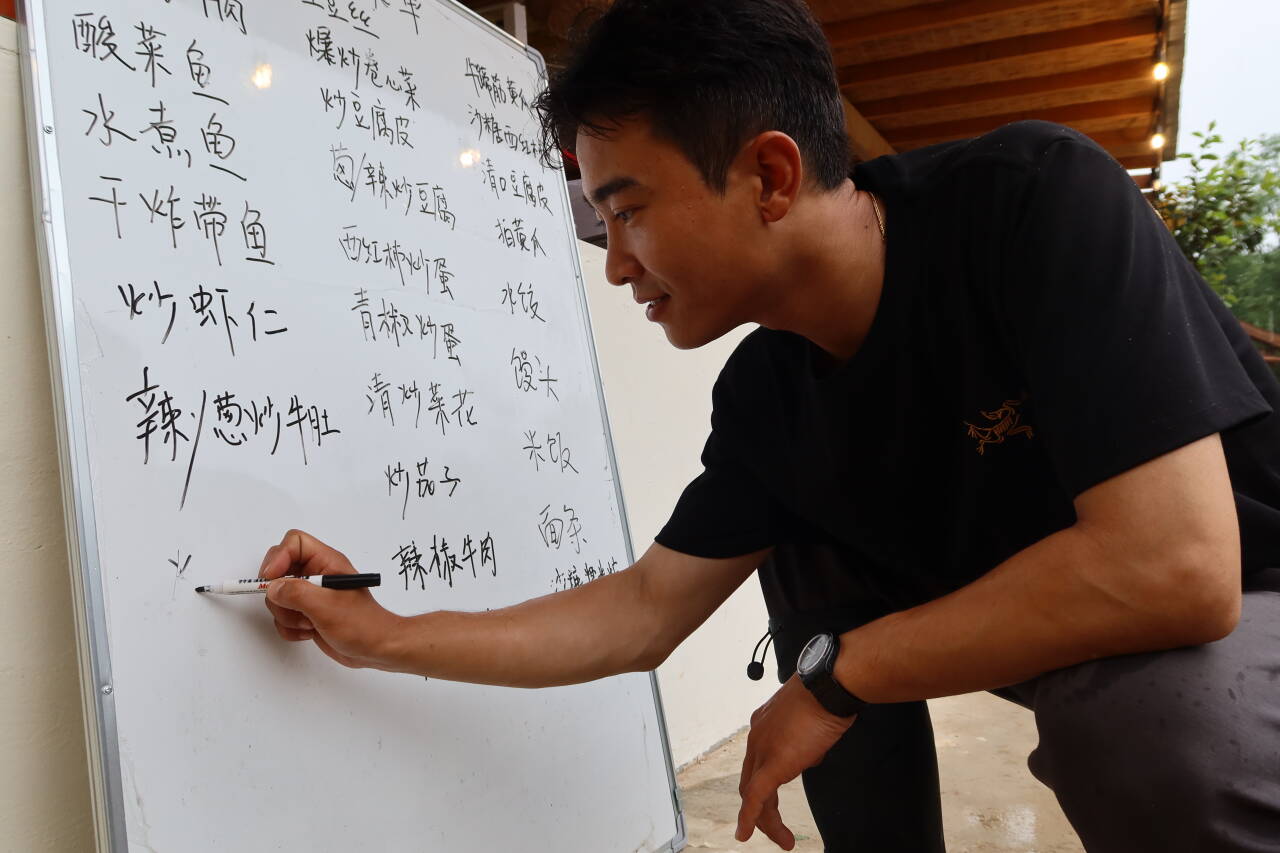 酸菜鱼
水煮鱼
干炸带鱼
炒虾仁
辣/葱炒牛肚
爆炒卷心菜
炒豆腐皮
葱/辣炒豆腐
西红柿炒蛋
青椒炒蛋
清炒菜花
炒茄子
辣椒牛肉
牛蹄筋黄瓜
沙糖西红柿
清口豆腐皮
拍黄瓜
水饺
馒头
米饭
面条